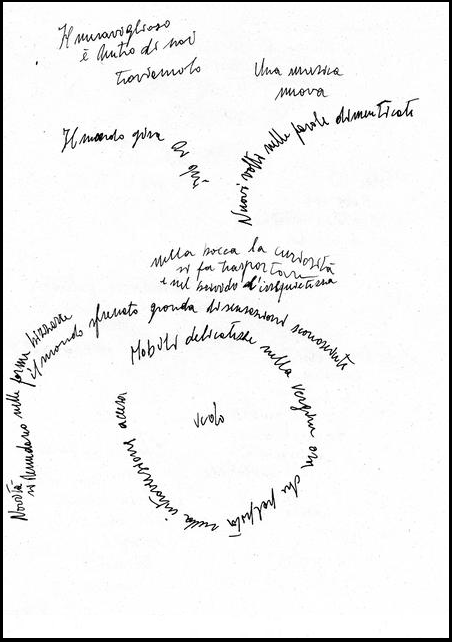 Il meraviglioso
è dentro di noi
troviamolo
Una musica
nuova
Il mondo gira
di più
Nuovi volti nelle parole dimenticate
nella bocca la curiosità
si fa trasportare
e nel bervido d'inquietezza
Novità
si
nelle forme bizzarre
il mondo sfrenato gronda di sensazioni sconosciute
Mobili delicatezze nella vergine
che palpita nella introversione accesa
vedo